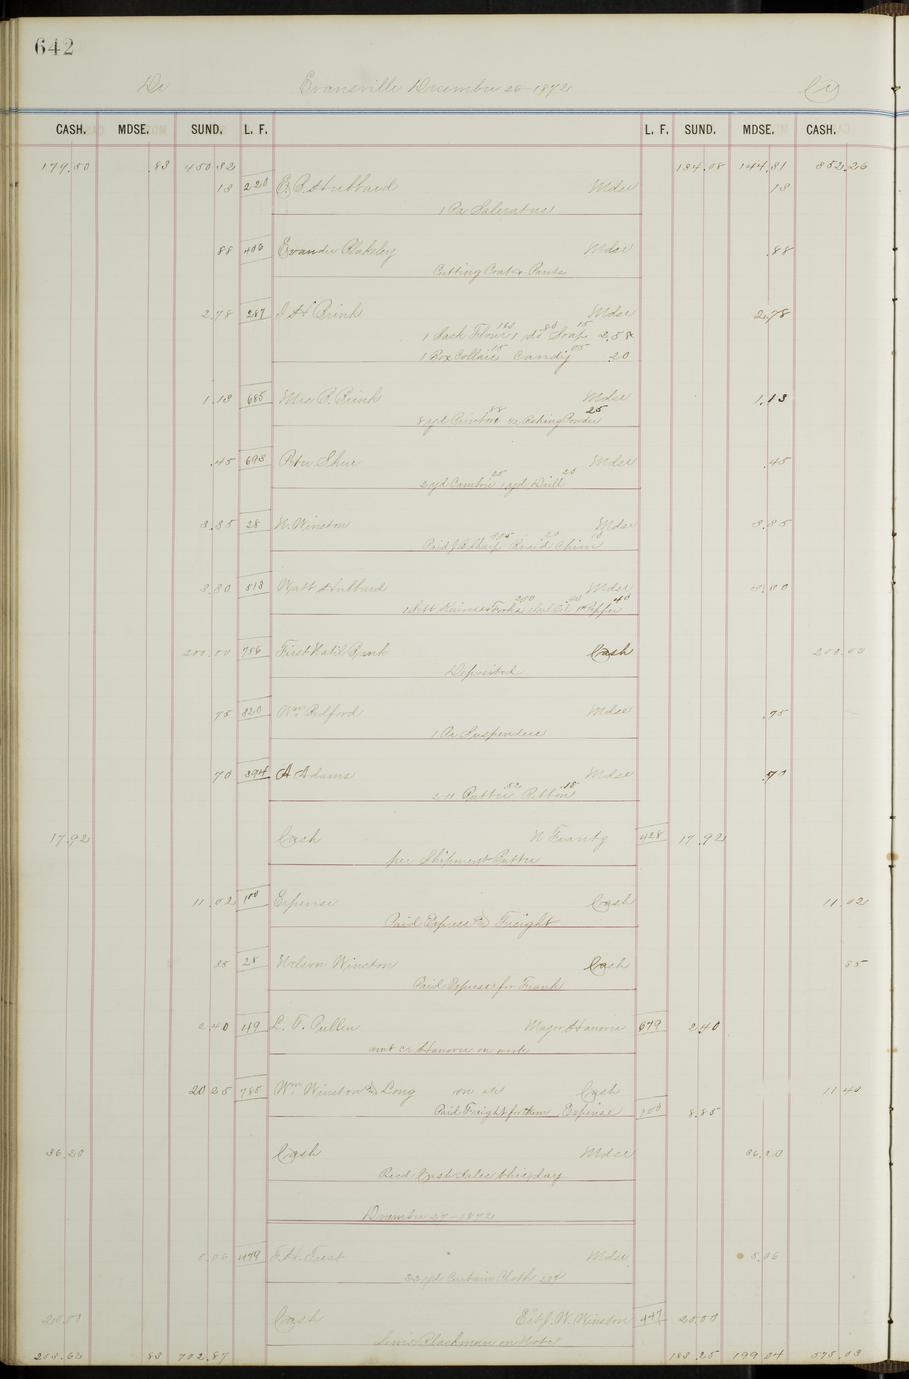 642
Dr Evansville December 26 - 1872 Cr
CASH. MDSE. SUND. L. F. L. F. SUND. MDSE. CASH.
179.50 .83 450 32 184.08 144.31 352.26
13 220 E. B. Hubbard Mdse 13
1 Pa Saleratus
88 406 Evander Blakeley Mdse .88
Cutting Coat & Pants
2.78 287 Brink Mdse 2.78
1 Sack Flour 1 Soap 2,58
1 Box Collars 15 Candy 05 .20
1.13 685 Mrs Brink Mdse 1.13
8 yd 88 ½ Baking Powder 25
.45 693 Peter Mdse .45
2 yd Cambric 25 1 yd Drill 20
3.35 28 N. Winston Mdse 3.35
Paid Braid 20
3.80 513 Watt Hubbard Mdse 3.80
1 Sett Knives & Forks 40
200.00 756 First Natl Bank Cash 200.00
Deposited
75 320 Wm Bedford Mdse .75
1 Pr Suspenders
70 394 A Adams Mdse .70
Butter .52 Ribbon .18
17.92 Cash N Frantz 428 17.92
per Shipment Butter
11.02 100 Expense Cash 11.02
Paid Express & Freight
35 28 Nelson Winston Cash 35
Paid Express for Frank
2.40 119 L. T. Pullen Major Hanover 679 2.40
amt cr Hanover on
20 25 785 Wm Winston & Long Cash 11 40
Paid Freight for them Expense 100 8.85
36.20 Cash Mdse 36.20
Recd Cash Sales this day
December 27 - 1872
5.06 479 Mdse 5.06
yd Curtain Cloth
20.00 Cash W. Winston 447 20.00
Blackman on Note
253.62 83 702.87 199.04 575.03